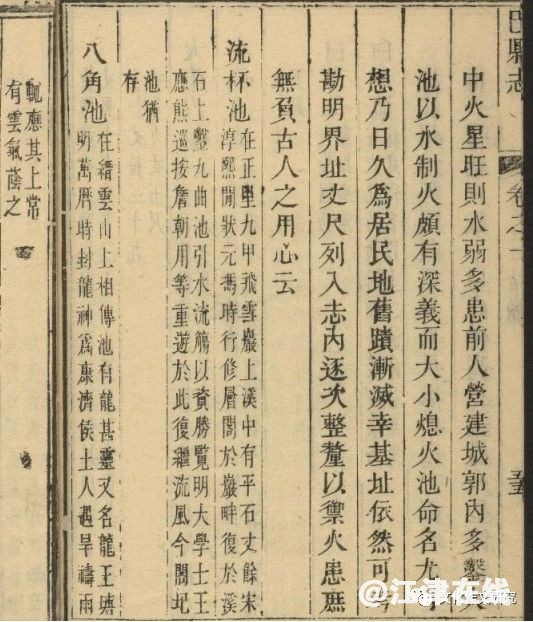 巴縣志
卷之一
五
中火星旺則水弱多患前人營建城郭內多鑿
池以水制火頗有深義而大小熄火池命名尤
想乃日久爲居民地舊蹟漸滅幸基址依然可
勘明界址丈尺列入志內逐次整釐以禦火患庶
無負古人之用心云
流杯池在正里九甲飛雲巖上溪中有平石丈餘宋
淳熙間狀元馮時行修層閣於巖畔復於溪
石上鑿九曲池引水流觴以資勝覽明大學士王
應熊巡按詹朝用等重遊於此復繼流風今閣圮
池猶
存
八角池在縉雲山上相傳池有龍甚靈又名龍王塘
明萬曆時封龍神爲康濟侯土人遇旱禱雨
輒應其上常
有雲氣蔭之
江津在線